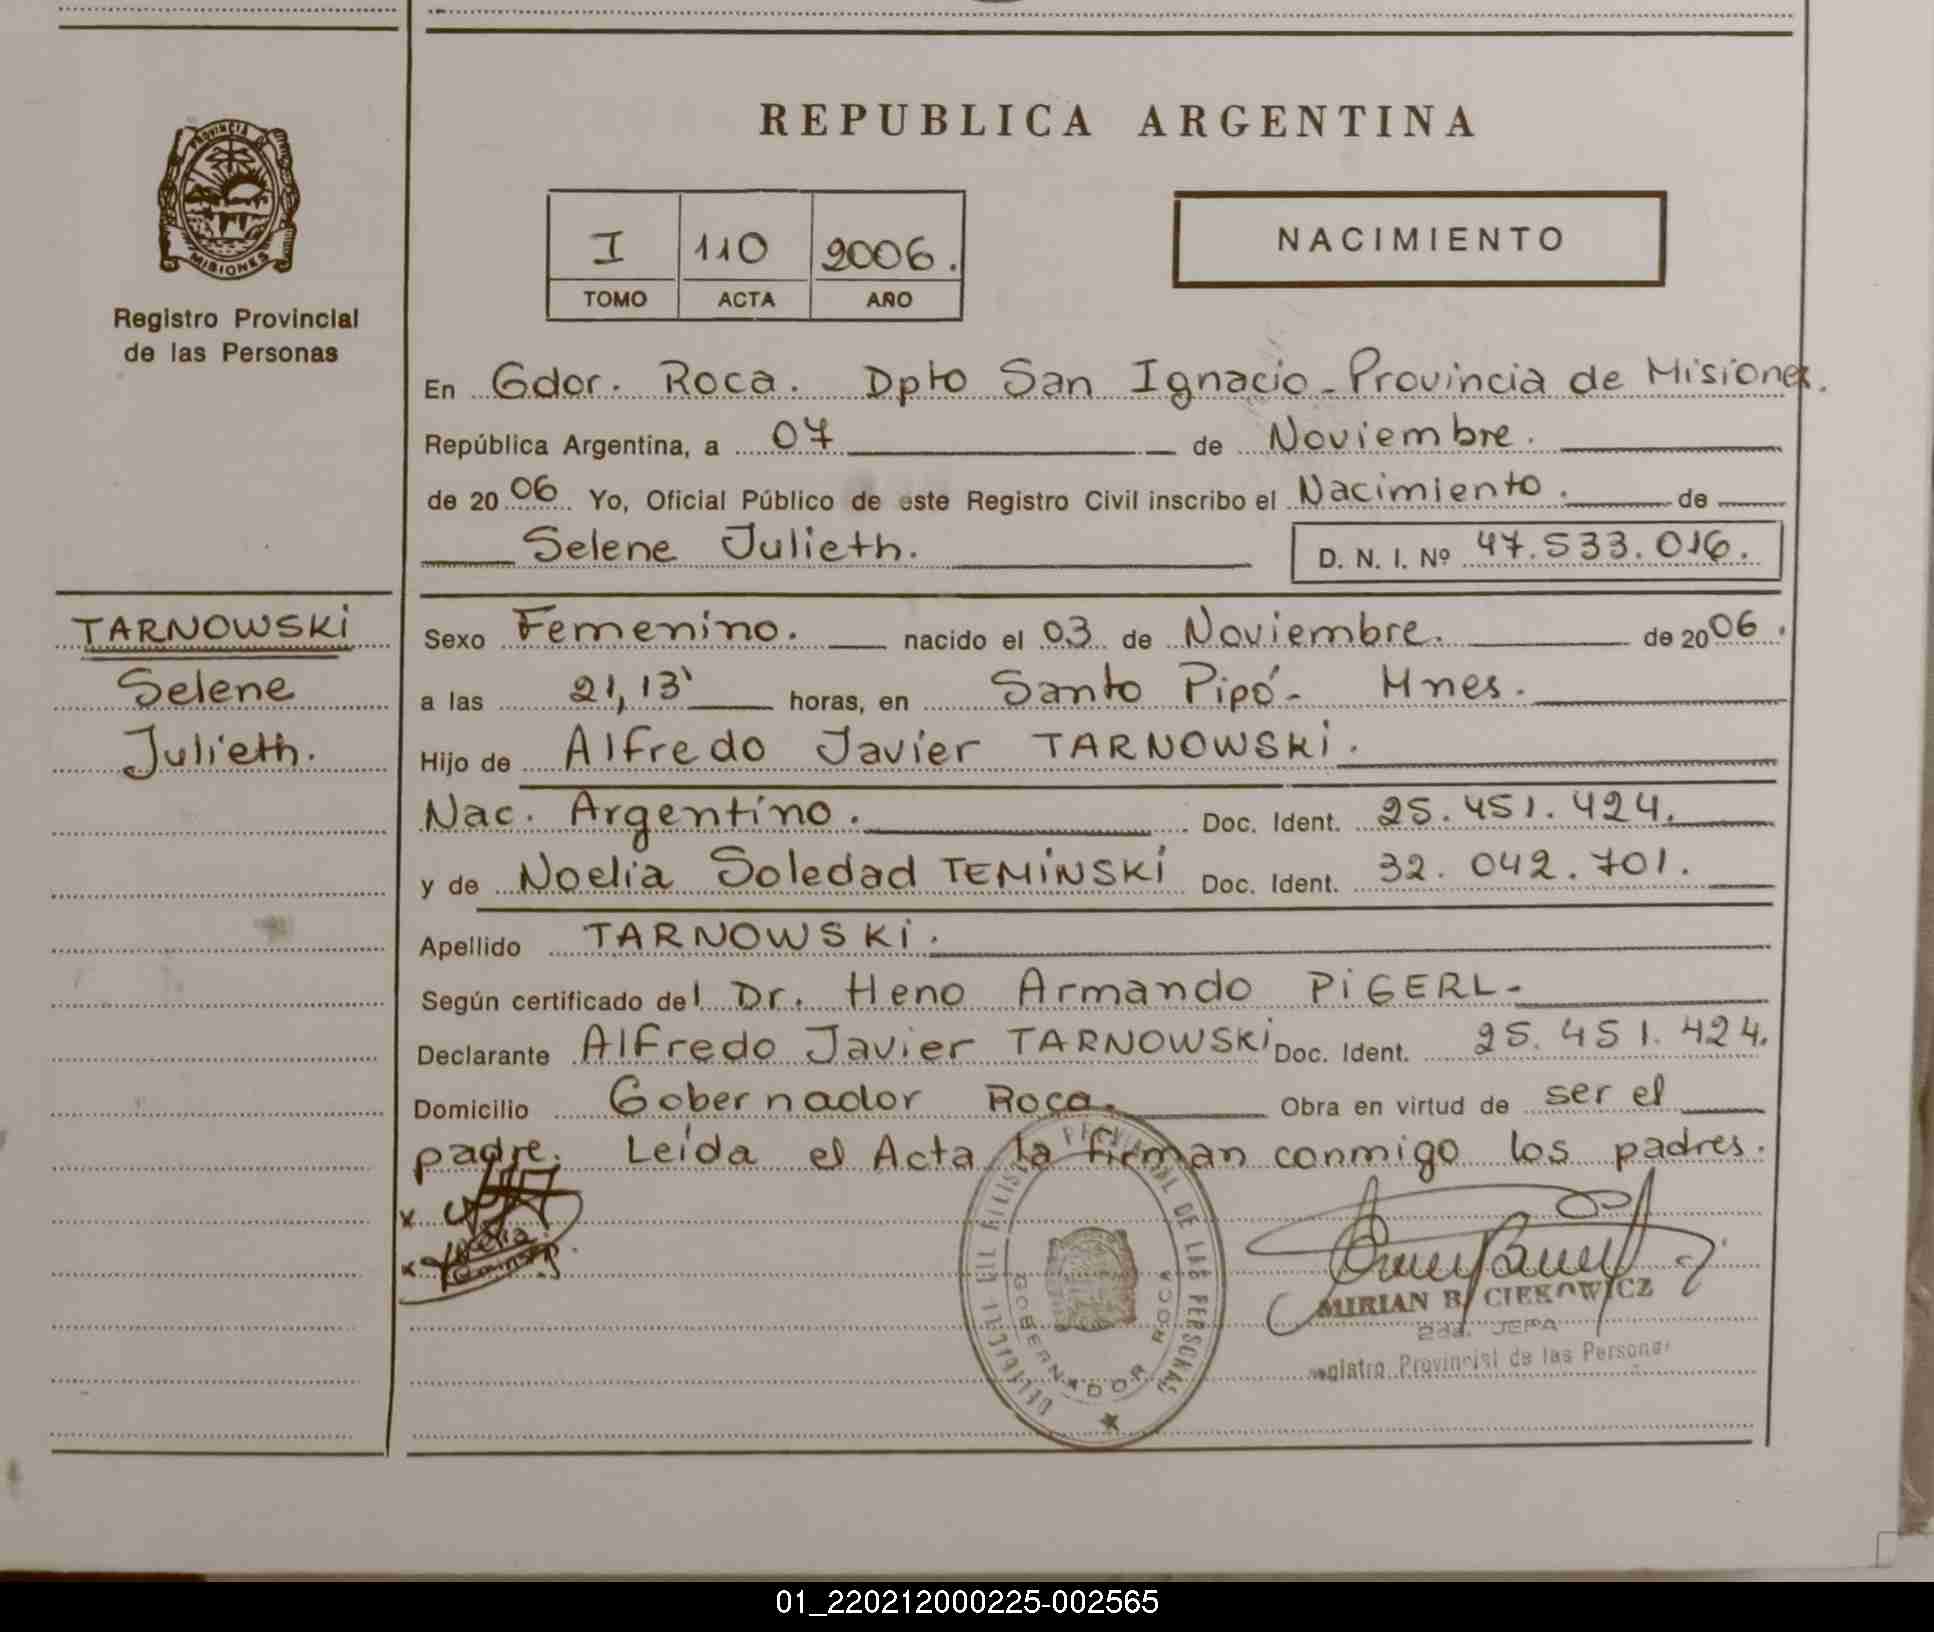 REPUBLICA ARGENTINA
PROVINCIA DE
MISIONES
Registro Provincial
de las Personas
I 110 2006.
TOMO ACTA AÑO
NACIMIENTO
En Gdor. Roca. Dpto San Ignacio - Provincia de Misiones.
República Argentina, a 07 de Noviembre.
de 2006 Yo, Oficial Público de este Registro Civil inscribo el Nacimiento. de
Selene Julieth. D. N. I. Nº 47.533.016.
TARNOWSKi
Selene
Julieth.
Sexo Femenino. nacido el 03 de Noviembre. de 2006.
a las 21,13' horas, en Santo Pipó - Mnes.
Hijo de Alfredo Javier TARNOWSKi.
Nac. Argentino. Doc. Ident. 25.451.424.
y de Noelia Soledad TEMiNSKi Doc. Ident. 32.042.701.
Apellido TARNOWSKi.
Según certificado del Dr. Heno Armando PiGERL -
Declarante Alfredo Javier TARNOWSKi Doc. Ident. 25.451.424.
Domicilio Gobernador Roca. Obra en virtud de ser el
padre. Leída el Acta la firman conmigo los padres.
x
x
PROVINCIAL DE LAS PERSONAS
GOBERNADOR ROCA
MIRIAN B. CIEKOWICZ
2da. JEFA
Registro Provincial de las Personas
01_220212000225-002565